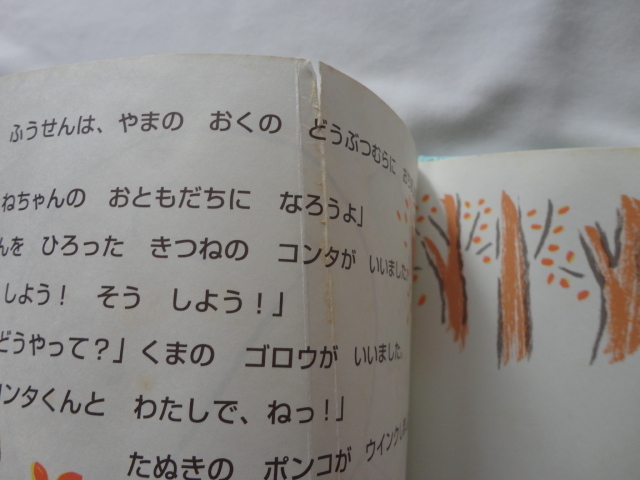 ふうせんは、やまの おくの どうぶつむらに
ねちゃんの おともだちに なろうよ」
ひろった きつねの コンタが いいました。
しよう! そう しよう!」
どうやって?」くまの ゴロウが いいました。
ンタくんと わたしで、ねっ!」
たぬきの ポンコが ウインクし